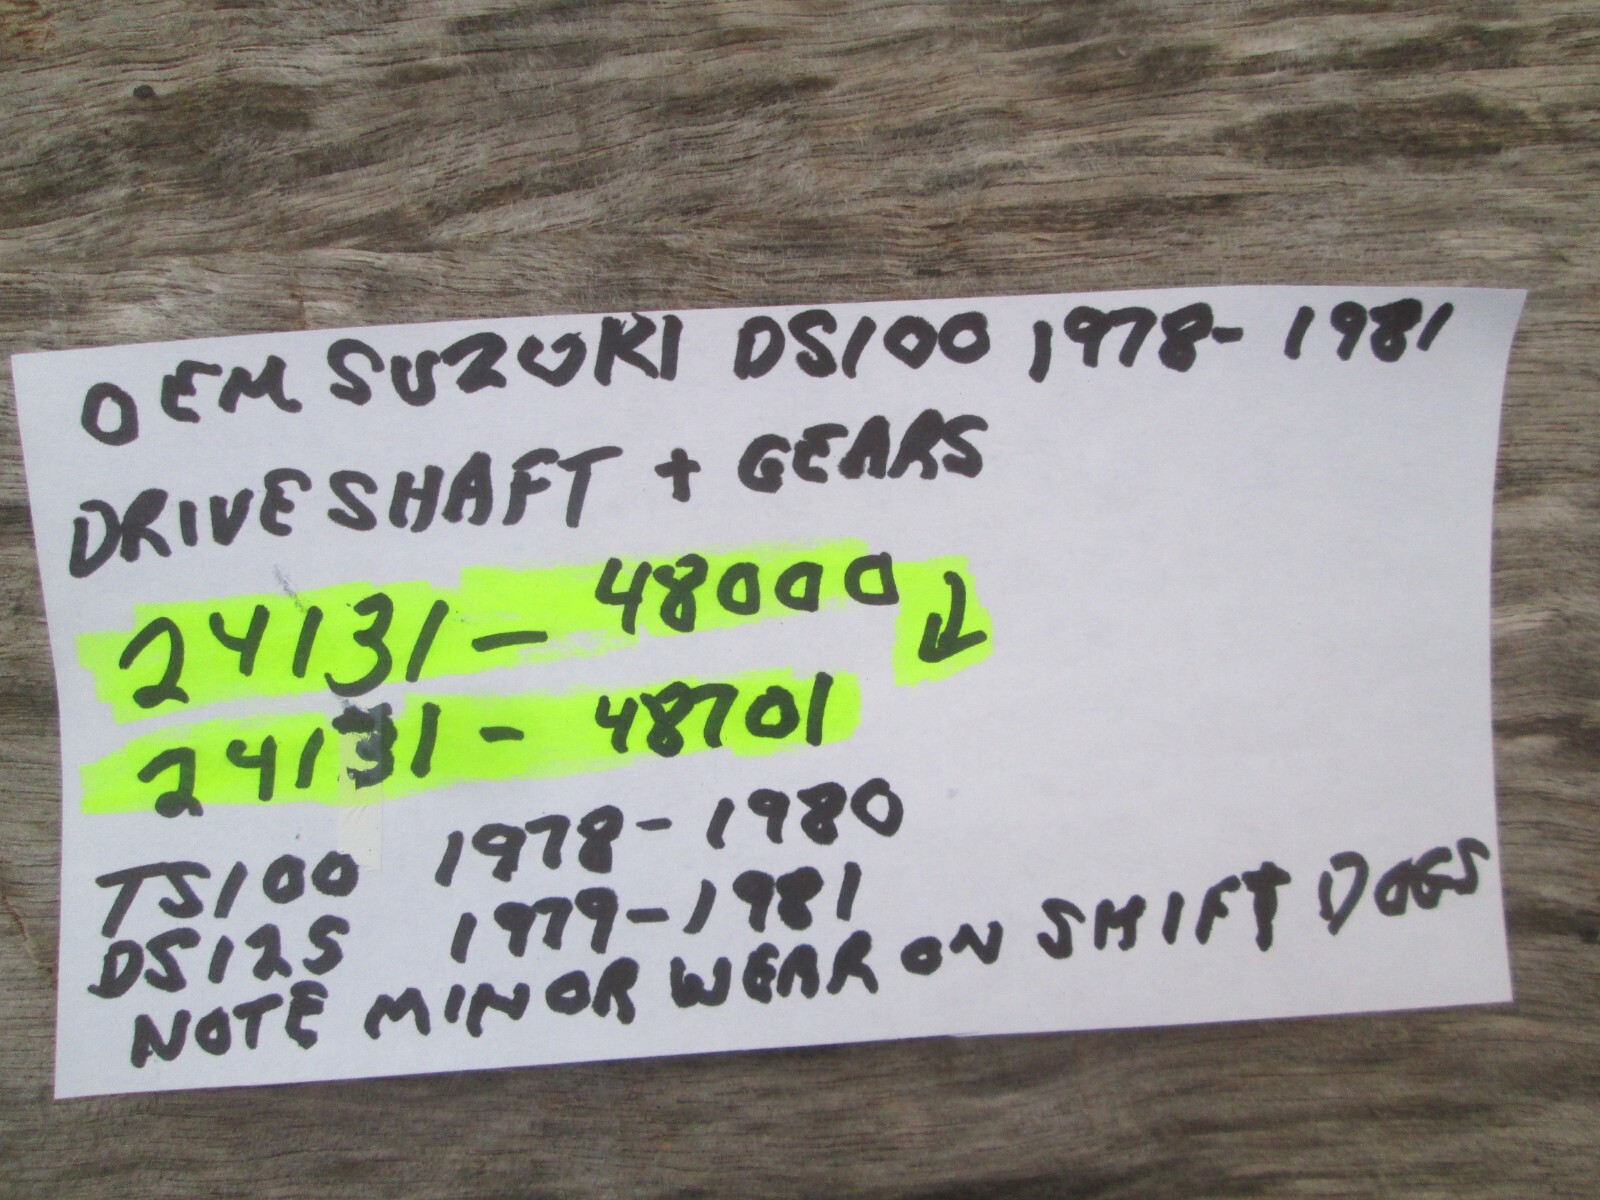 OEM SUZUKI DS100 1978-1981
DRIVESHAFT + GEARS
24131-48000 ↓
24131-48701
TS100 1978-1980
DS125 1979-1981
NOTE MINOR WEAR ON SHIFT DOGS